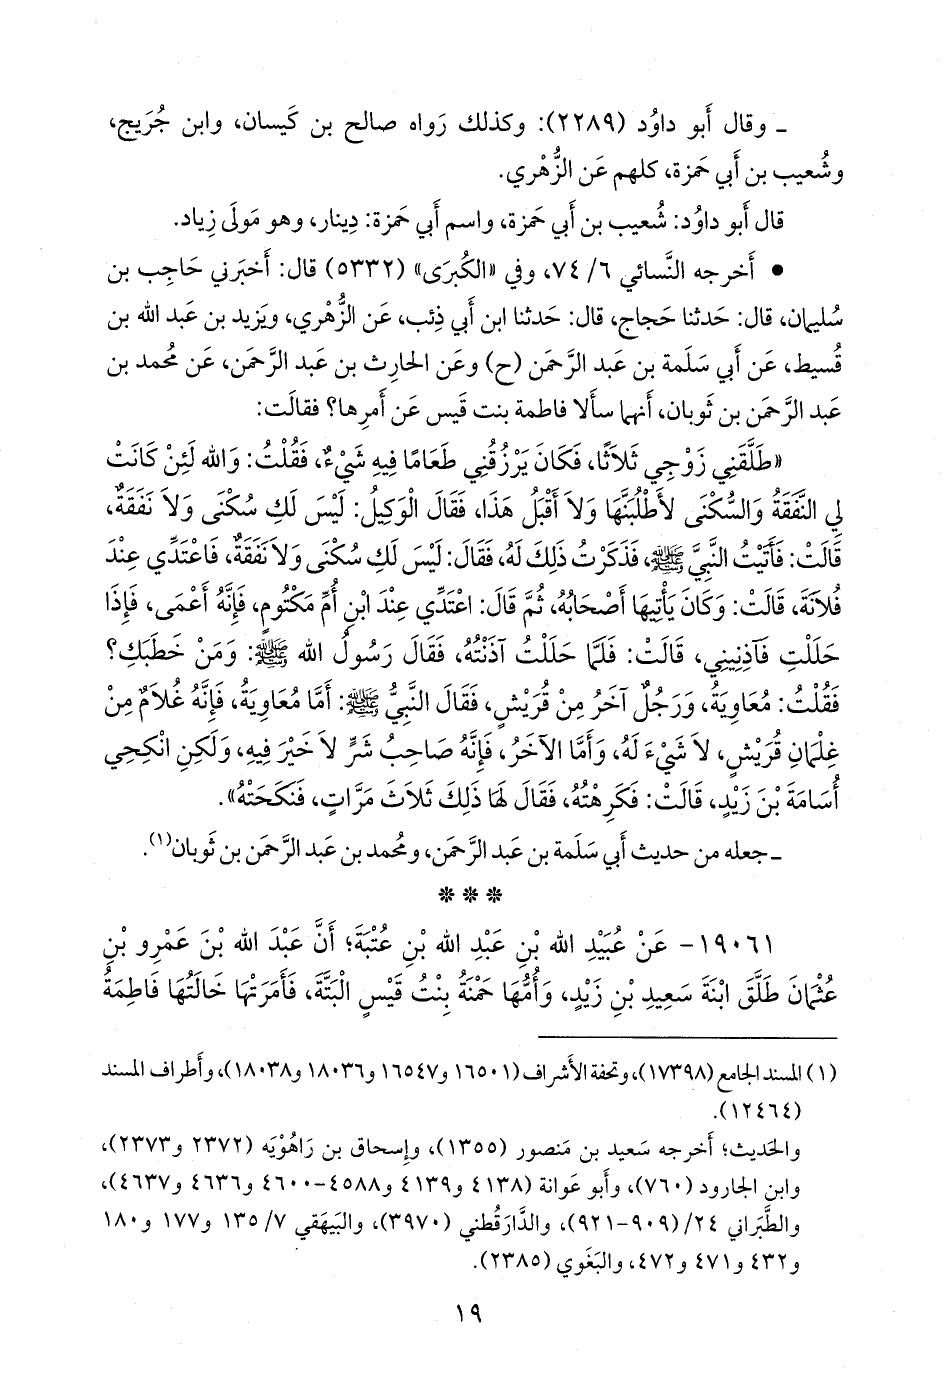 ـ وقال أَبو داوُد (٢٢٨٩): وكذلك رَواه صالح بن كَيسان، وابن جُرَيج،
وشُعيب بن أَبي حَمزة، كلهم عَن الزُّهْري.
قال أَبو داوُد: شُعيب بن أَبي حَمزة، واسم أَبي حَمزة: دِينار، وهو مَولَى زِياد.
• أَخرجه النَّسائي ٦/ ٧٤، وفي «الكُبرَى» (٥٣٣٢) قال: أَخبَرني حَاجِب بن
سُليمان، قال: حَدثنا حَجاج، قال: حَدثنا ابن أَبي ذِئب، عَن الزُّهْري، ويَزيد بن عَبد الله بن
قُسيط، عَن أَبي سَلَمة بن عَبد الرَّحمَن (ح) وعَن الحارِث بن عَبد الرَّحمَن، عَن مُحمد بن
عَبد الرَّحمَن بن ثَوبان، أَنهما سأَلا فاطمة بنت قَيس عَن أَمرِها؟ فقالَت:
«طَلَّقَنِي زَوْجِي ثَلاَثًا، فَكَانَ يَرْزُقُنِي طَعَامًا فِيهِ شَيْءٌ، فَقُلْتُ: وَالله لَئِنْ كَانَتْ
لِي النَّفَقَةُ وَالسُّكْنَى لأَطْلُبَنَّهَا وَلاَ أَقْبَلُ هَذَا، فَقَالَ الْوَكِيلُ: لَيْسَ لَكِ سُكْنَى وَلاَ نَفَقَةٌ،
قَالَتْ: فَأَتَيْتُ النَّبِيَّ ﷺ، فَذَكَرْتُ ذَلِكَ لَهُ، فَقَالَ: لَيْسَ لَكِ سُكْنَى وَلاَ نَفَقَةٌ، فَاعْتَدِّي عِنْدَ
فُلاَنَةَ، قَالَتْ: وَكَانَ يَأْتِيهَا أَصْحَابُهُ، ثُمَّ قَالَ: اعْتَدِّي عِنْدَ ابْنِ أُمِّ مَكْتُومٍ، فَإِنَّهُ أَعْمَى، فَإِذَا
حَلَلْتِ فَآذِنِينِي، قَالَتْ: فَلَمَّا حَلَلْتُ آذَنْتُهُ، فَقَالَ رَسُولُ الله ﷺ: وَمَنْ خَطَبَكِ؟
فَقُلْتُ: مُعَاوِيَةُ، وَرَجُلٌ آخَرُ مِنْ قُرَيْشٍ، فَقَالَ النَّبِيُّ ﷺ: أَمَّا مُعَاوِيَةُ، فَإِنَّهُ غُلاَمٌ مِنْ
غِلْمَانِ قُرَيْشٍ، لاَ شَيْءَ لَهُ، وَأَمَّا الآخَرُ، فَإِنَّهُ صَاحِبُ شَرٍّ لاَ خَيْرَ فِيهِ، وَلَكِنِ انْكِحِي
أُسَامَةَ بْنَ زَيْدٍ، قَالَتْ: فَكَرِهْتُهُ، فَقَالَ لَهَا ذَلِكَ ثَلاَثَ مَرَّاتٍ، فَنَكَحَتْهُ».
ـ جعله من حديث أَبي سَلَمة بن عَبد الرَّحمَن، ومُحمد بن عَبد الرَّحمَن بن ثَوبان(١).
* * *
١٩٠٦١ - عَنْ عُبَيْدِ الله بْنِ عَبْدِ الله بْنِ عُتْبَةَ؛ أَنَّ عَبْدَ الله بْنَ عَمْرِو بْنِ
عُثْمَانَ طَلَّقَ ابْنَةَ سَعِيدِ بْنِ زَيْدٍ، وَأُمُّهَا حَمْنَةُ بِنْتُ قَيْسٍ الْبَتَّةَ، فَأَمَرَتْهَا خَالَتُهَا فَاطِمَةُ
(١) المسند الجامع (١٧٣٩٨)، وتحفة الأَشراف (١٦٥٠١ و١٦٥٤٧ و١٨٠٣٦ و١٨٠٣٨)، وأَطراف المسند
(١٢٤٦٤).
والحَديث؛ أَخرجه سَعيد بن مَنصور (١٣٥٥)، وإِسحاق بن رَاهُوْيَه (٢٣٧٢ و٢٣٧٣)،
وابن الجارود (٧٦٠)، وأَبو عَوانة (٤١٣٨ و٤١٣٩ و٤٥٨٨-٤٦٠٠ و٤٦٣٦ و٤٦٣٧)،
والطَّبَراني ٢٤/(٩٠٩-٩٢١)، والدَّارَقُطني (٣٩٧٠)، والبَيهَقي ٧/ ١٣٥ و١٧٧ و١٨٠
و٤٣٢ و٤٧١ و٤٧٢، والبَغَوي (٢٣٨٥).
١٩